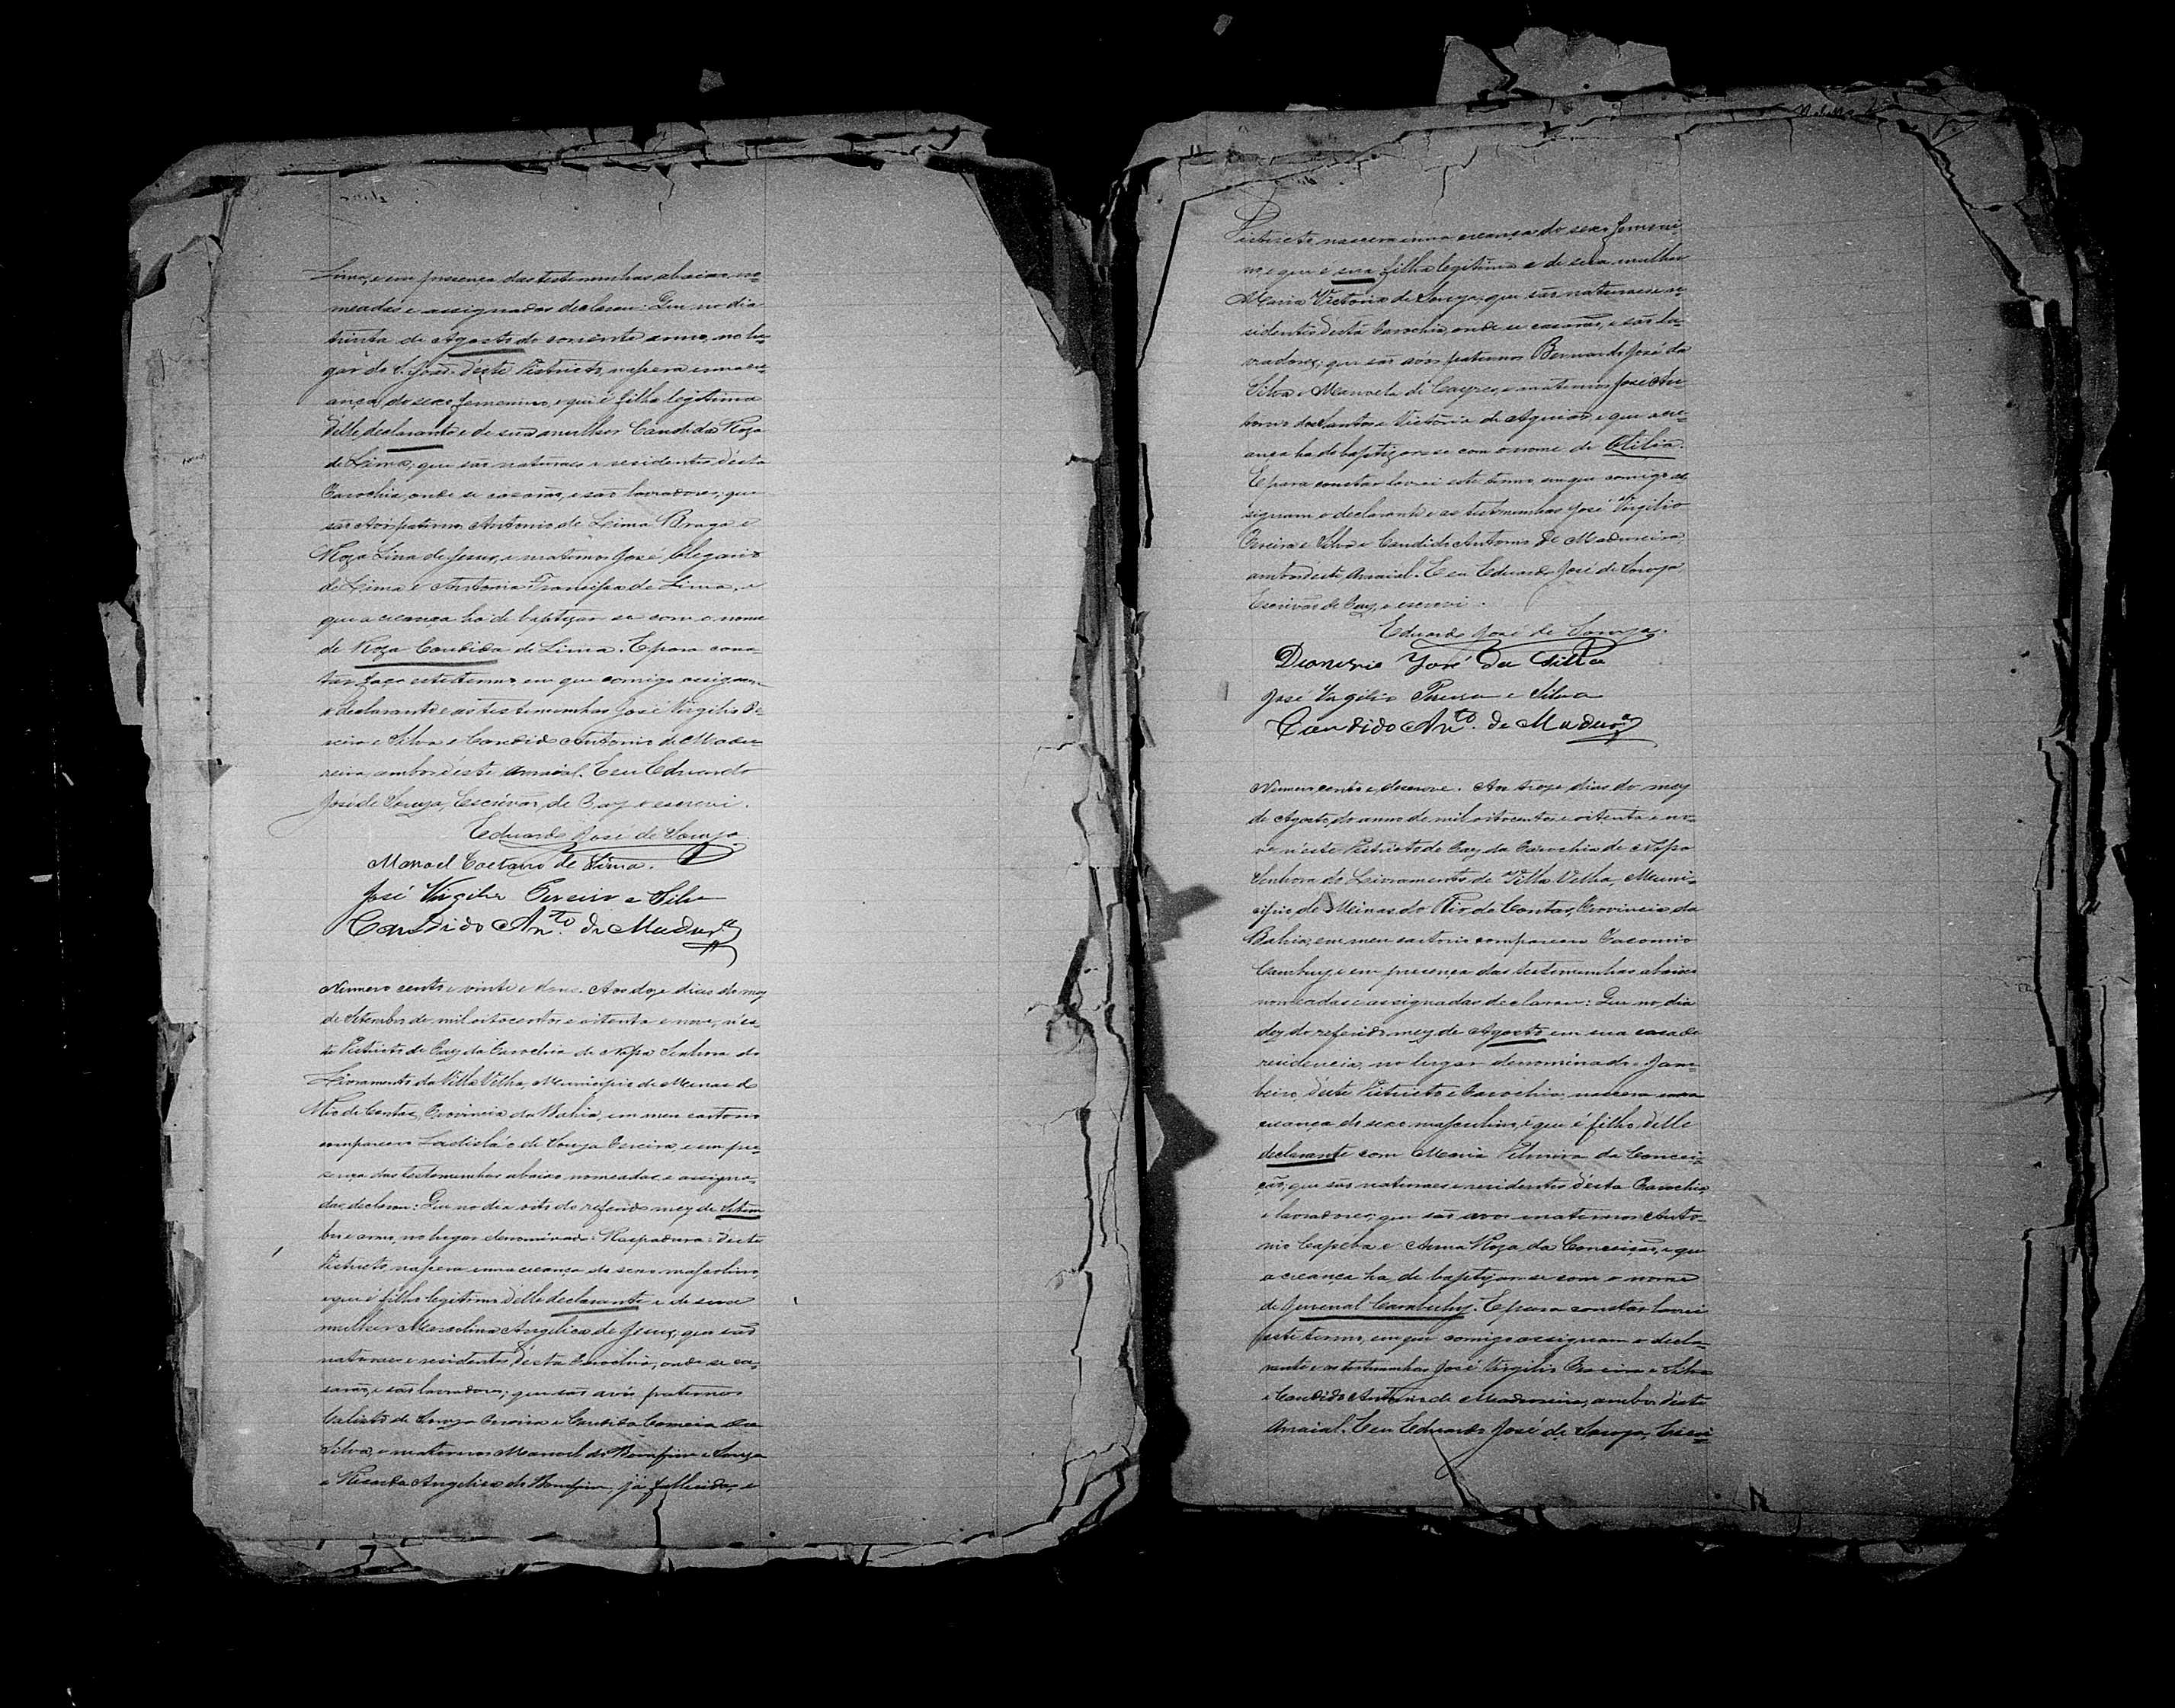 Lima, e em presença das testemunhas abaixo no-
meadas e assignadas declarou: Que no dia
trinta de Agosto do corrente anno, no lu-
gar de S. João d'este Districto, nascera uma cre-
ança do sexo femenino, e que é filha legitima
d'elle declarante e de sua mulher Candida Roza
de Lima, que são naturaes e residentes d'esta
Parochia, onde se casarão, e são lavradores; que
são Avós paternos Antonio de Lima Braga e
Roza Lina de Jesus, e maternos José Olegario
de Lima e Antonia Francisca de Lima, e
que a creança ha de baptizar se com o nome
de Roza Candida de Lima. E para cons-
tar faço este termo, em que comigo assignam
o declarante e as testemunhas José Virgilio Pe-
reira e Silva e Candido Antonio de Madu-
reira, ambos d'este Arraial. E eu Eduardo
José de Souza, Escrivão de Paz o escrevi.
Eduardo José de Souza.
Manoel Caetano de Lima.
José Virgilio Pereira e Silva
Candido An.to de Madur.a
Numero cento e vinte e Aos doze dias do mez
de Setembro de mil oitocentos e oitenta e nove, n'es-
te Districto de Paz da Parochia de Nossa Senhora do
Livramento da Villa Velha, Municipio de Minas do
Rio de Contas, Provincia da Bahia, em meu cartorio
compareceu Ladisláo de Souza Pereira, e em pre-
sença das testemunhas abaixo nomeadas e assigna-
das, declarou: Que no dia oito do referido mez de Setem
bro e anno, no lugar denominado: Raspadura: d'este
Districto, nascera uma creança do sexo masculino,
e que é filho legitimo d'elle declarante e de sua
mulher Marcolina Angelica de Jesus, que são
naturaes e residentes d'esta Parochia, onde se ca-
sarão, e são lavradores; que são avós paternos
Calisto de Souza Pereira e Candida Correia da
Silva, e maternos Manoel do Bomfim e Souza
e Ricarda Angelica do Bomfim, já fallecidos, e
Districto nascera uma creança do sexo femini-
no, e que é sua filha legitima e de sua mulher
Maria Victoria de Souza, que são naturaes e re-
sidentes d'esta Parochia, onde se casarão, e são la-
vradores; que são avós paternos Bernardo José da
Silva e Manoela de Cayres, e maternos José An
tonio dos Santos e Victoria de Aguiar, e que a cre-
ança ha de baptizar se com o nome de Otilia.
E para constar lavrei este termo, em que comigo as-
signam o declarante e as testemunhas José Virgilio
Pereira e Silva e Candido Antonio de Madureira,
ambos d'este Arraial. E eu Eduardo José de Souza
Escrivão de Paz, o escrevi.
Eduardo José de Souza.
Dionizio José da Silva
José Virgilio Pereira e Silva
Candido An.to de Madur.a
Numero cento e desenove. Aos treze dias do mez
de Agosto, do anno de mil oitocentos e oitenta e no-
ve n'este Districto de Paz da Parochia de Nossa
Senhora do Livramento de Villa Velha, Muni-
cipio de Minas do Rio de Contas, Provincia da
Bahia, em meu cartorio compareceu
e em presença das testemunhas abaixo
nomeadas e assignadas declarou: Que no dia
dez do referido mez de Agosto em sua casa de
residencia, no lugar denominado Jam-
beiro, d'este Districto e Parochia, nascera uma
creança do sexo masculino, e que é filho d'elle
declarante com Maria da Concei-
ção, que são naturaes e residentes d'esta Parochia,
e lavradores; que são avos maternos Anto-
nio Capeba e Anna Roza da Conceição, e que
a creança ha de baptizar se com o nome
de Juvenal Cambuhy. E para constar lavrei
este termo, em que comigo assignam o decla-
rante e as testemunhas José Virgilio Pereira e Silva
e Candido Antonio de Madureira, ambos d'este
Arraial. E eu Eduardo José de Souza, Escri-